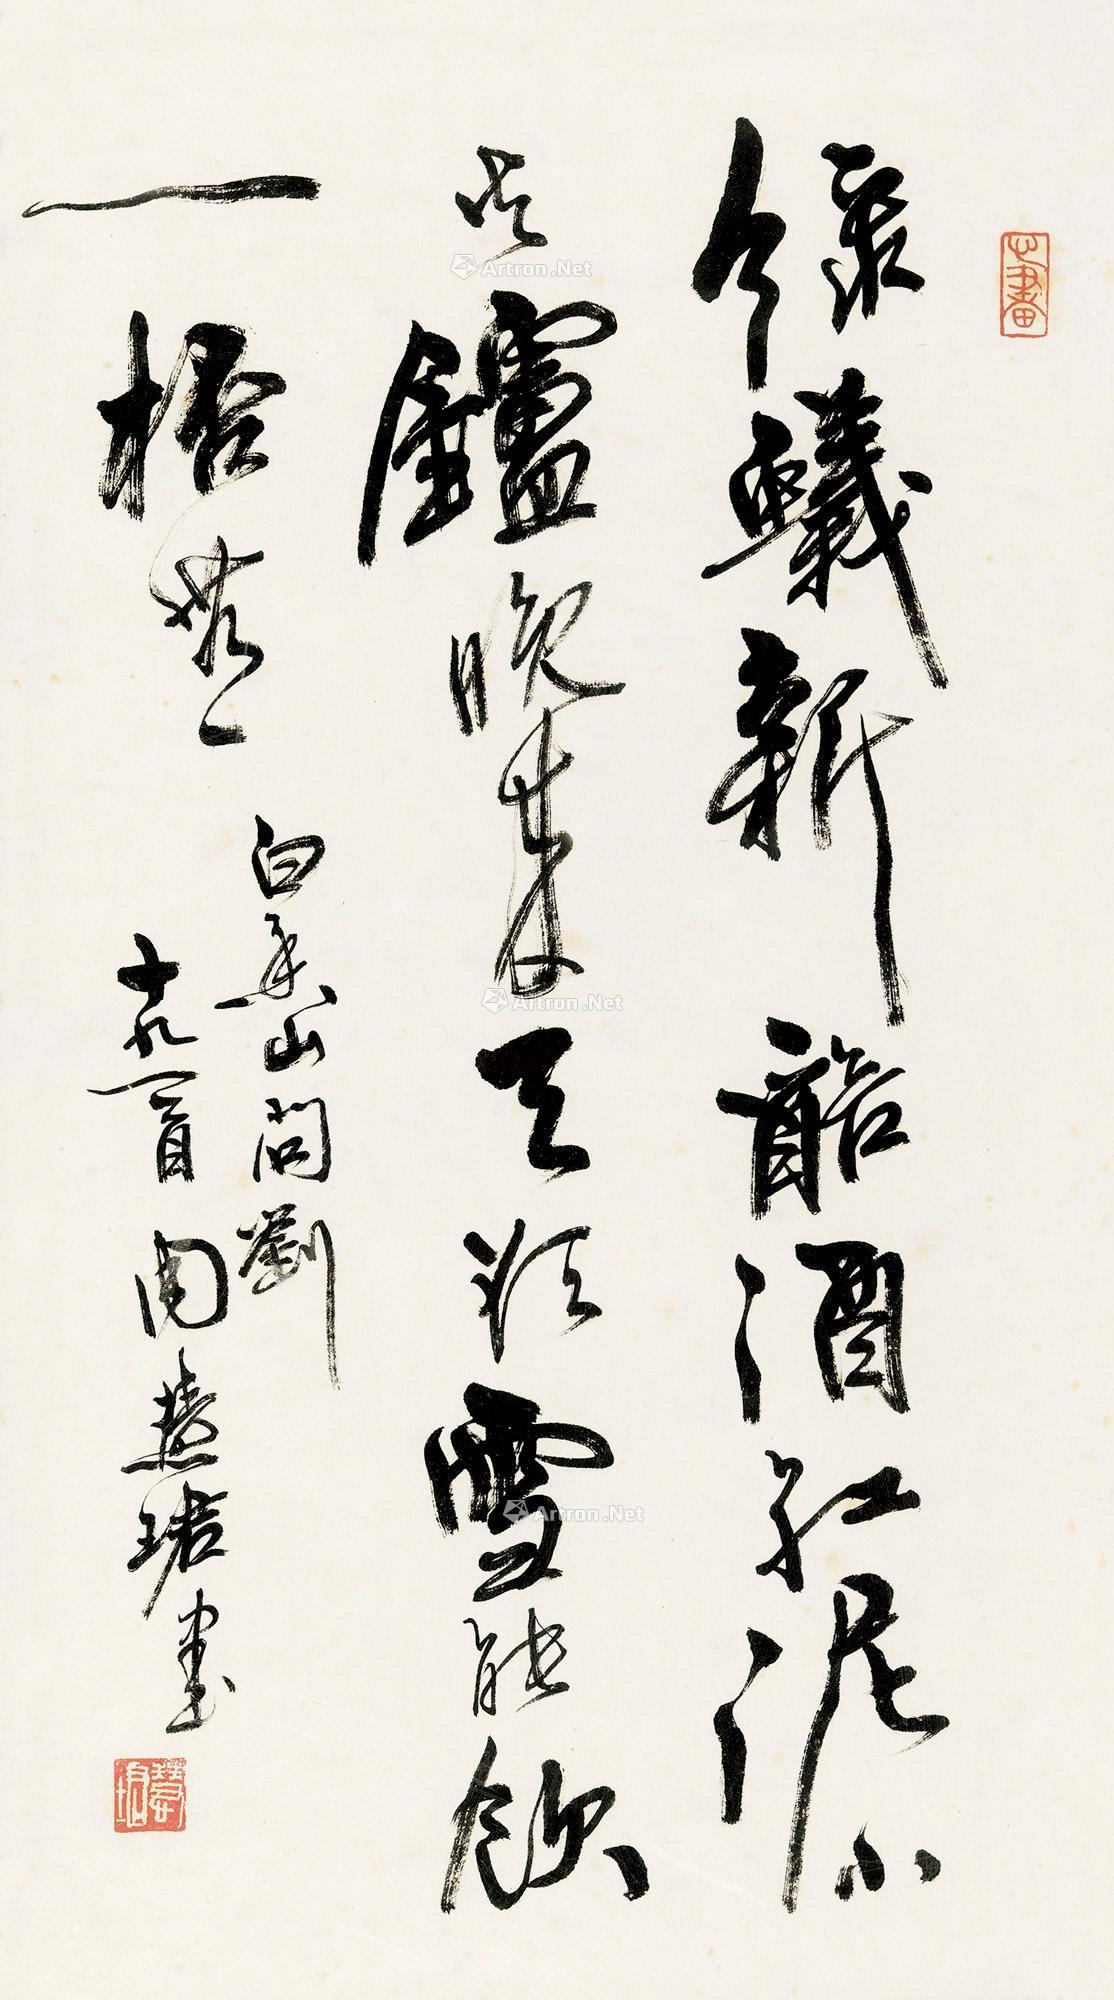 心畫
綠蟻新醅酒紅泥小
火鑪晚來天欲雪能飲
一桮無
白香山問劉
十九一首周慧珺書
慧珺
Artron.Net
Artron.Net
Artron.Net